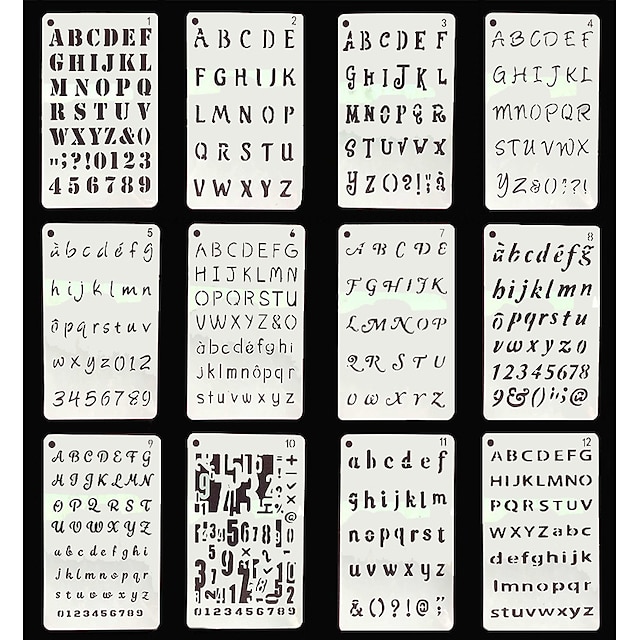 1
ABCDEF
GHIJKL
MNOPQ
RSTUV
WXYZ&()
";?!0123
456789
2
ABCDE
FGHIJK
LMNOP
QRSTU
VWXYZ
3
ABCDEF
GHIJKL
MNOPQR
STUVWX
YZ()?!";à
4
ABCDEF
GHIJKL
MNOPQR
STUVWX
YZ&();?!
5
àbcdéfg
hijklmn
ôpqrstuv
wxyz012
3456789
6
ABCDEFG
HIJKLMN
OPQRSTU
VWXYZ&()
àbcdéfghi
jklmnôpqr
stuvwxyz
7
ABCDE
FGHIJK
LMNOP
QRSTU
VWXYZ
8
hijklmn
vwxyz0
12345678
9
ABCDEFG
HIJKLMN
OPQRST
UVWXYZ
abcdefghi
jklmnopqr
stuvwxyz
0123456789
10
0123456789
11
abcdef
ghijklm
nopqrst
uvwxyz
&()?!@;
12
ABCDEFG
HIJKLMNO
PQRSTUV
WXYZabc
defghijk
lmnopqr
stuvwxyz